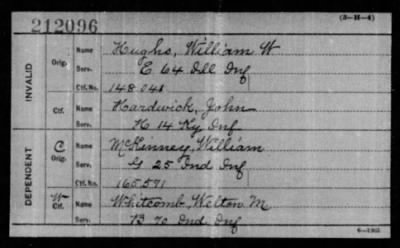 (3-H-4)
212096
INVALID
Orig. Name Hughs, William W
Serv. E 64 Ill Inf
Ctf. No. 148048
Ctf. Name Hardwick, John
Serv. H 14 Ky Inf
DEPENDENT
C Orig. Name McKinney, William
Serv. G 25 Ind Inf
Ctf. No. 165571
W Ctf. Name Whitcomb, Welton M
Serv. B 70 Ind Inf